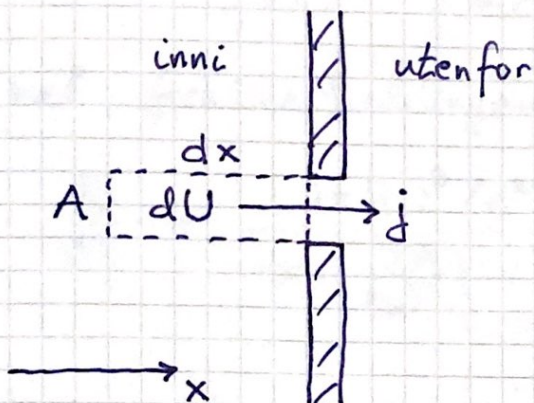 inni utenfor
dx
A dU j
x